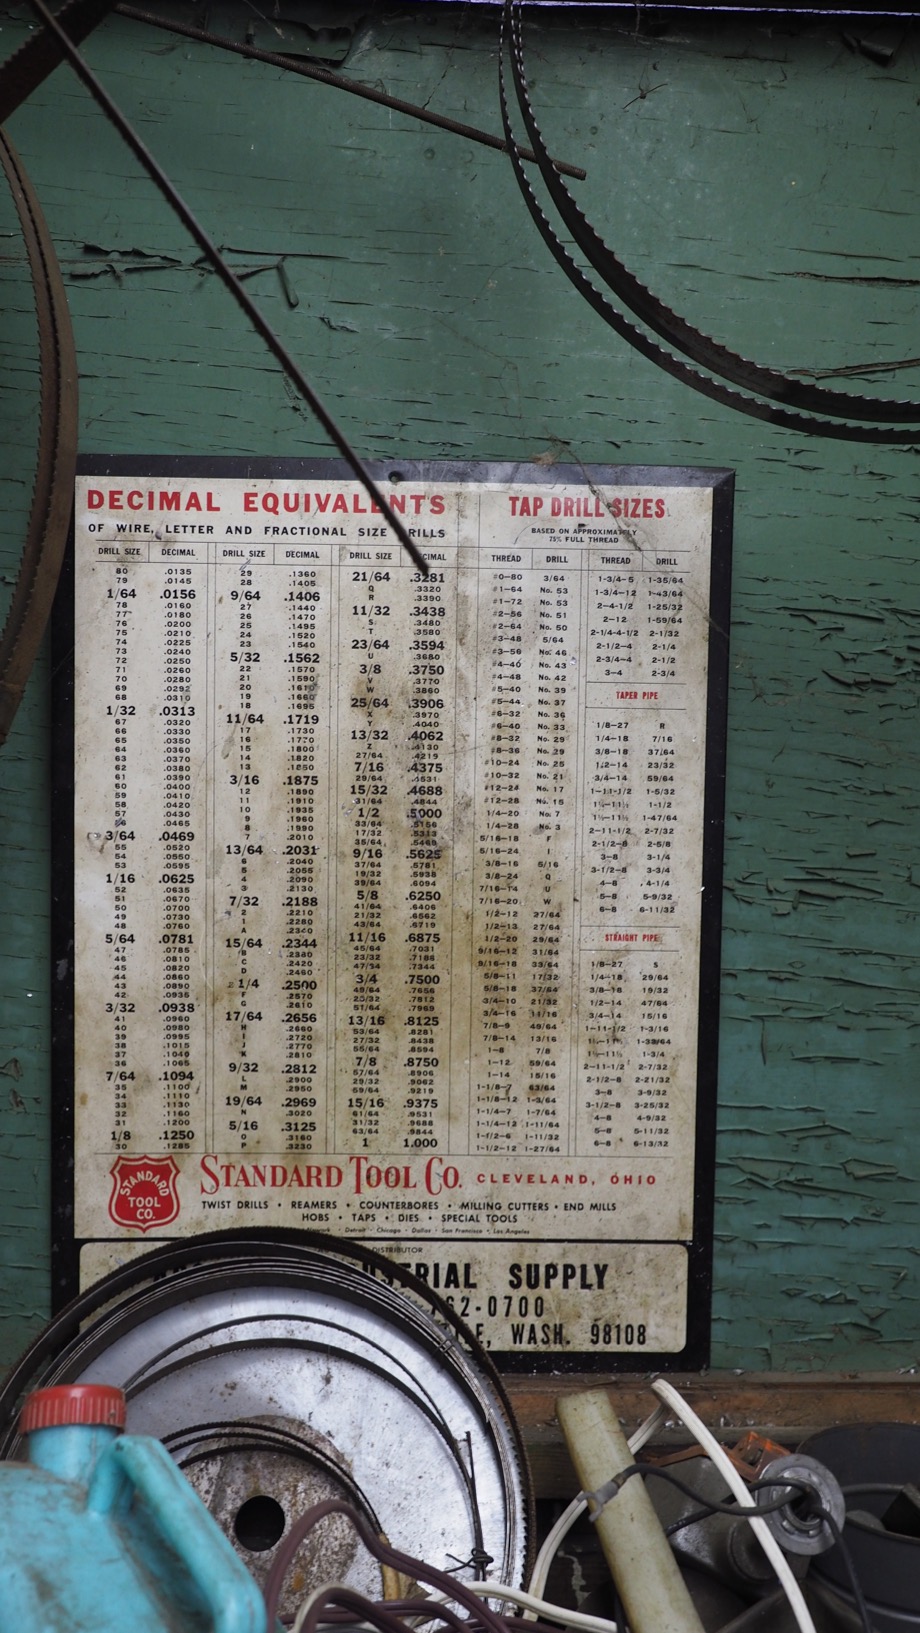 DECIMAL EQUIVALENTS
OF WIRE, LETTER AND FRACTIONAL SIZE RILLS
DRILL SIZE DECIMAL
80 .0135
79 .0145
1/64 .0156
78 .0160
77 .0180
76 .0200
75 .0210
74 .0225
73 .0240
72 .0250
71 .0260
70 .0280
69 .0292
68 .0310
1/32 .0313
67 .0320
66 .0330
65 .0350
64 .0360
63 .0370
62 .0380
61 .0390
60 .0400
59 .0410
58 .0420
57 .0430
56 .0465
3/64 .0469
55 .0520
54 .0550
53 .0595
1/16 .0625
52 .0635
51 .0670
50 .0700
49 .0730
48 .0760
5/64 .0781
47 .0785
46 .0810
45 .0820
44 .0860
43 .0890
42 .0935
3/32 .0938
41 .0960
40 .0980
39 .0995
38 .1015
37 .1040
36 .1065
7/64 .1094
35 .1100
34 .1110
33 .1130
32 .1160
31 .1200
1/8 .1250
30 .1285
DRILL SIZE DECIMAL
29 .1360
28 .1405
9/64 .1406
27 .1440
26 .1470
25 .1495
24 .1520
23 .1540
5/32 .1562
22 .1570
21 .1590
20 .1610
19 .1660
18 .1695
11/64 .1719
17 .1730
16 .1770
15 .1800
14 .1820
13 .1850
3/16 .1875
12 .1890
11 .1910
10 .1935
9 .1960
8 .1990
7 .2010
13/64 .2031
6 .2040
5 .2055
4 .2090
3 .2130
7/32 .2188
2 .2210
1 .2280
A .2340
15/64 .2344
B .2380
C .2420
D .2460
1/4 .2500
F .2570
G .2610
17/64 .2656
H .2660
I .2720
J .2770
K .2810
9/32 .2812
L .2900
M .2950
19/64 .2969
N .3020
5/16 .3125
O .3160
P .3230
DRILL SIZE CIMAL
21/64 .3281
Q .3320
R .3390
11/32 .3438
S .3480
T .3580
23/64 .3594
U .3680
3/8 .3750
V .3770
W .3860
25/64 .3906
X .3970
Y .4040
13/32 .4062
Z .4130
27/64 .4219
7/16 .4375
29/64 .4531
15/32 .4688
31/64 .4844
1/2 .5000
33/64 .5156
17/32 .5313
35/64 .5469
9/16 .5625
37/64 .5781
19/32 .5938
39/64 .6094
5/8 .6250
41/64 .6406
21/32 .6562
43/64 .6719
11/16 .6875
45/64 .7031
23/32 .7188
47/64 .7344
3/4 .7500
49/64 .7656
25/32 .7812
51/64 .7969
13/16 .8125
53/64 .8281
27/32 .8438
55/64 .8594
7/8 .8750
57/64 .8906
29/32 .9062
59/64 .9219
15/16 .9375
61/64 .9531
31/32 .9688
63/64 .9844
1 1.000
TAP DRILL SIZES
BASED ON APPROXIMATELY
75% FULL THREAD
THREAD DRILL
#0-80 3/64
#1-64 No. 53
#1-72 No. 53
#2-56 No. 51
#2-64 No. 50
#3-48 5/64
#3-56 No. 46
#4-40 No. 43
#4-48 No. 42
#5-40 No. 39
#5-44 No. 37
#6-32 No. 36
#6-40 No. 33
#8-32 No. 29
#8-36 No. 29
#10-24 No. 25
#10-32 No. 21
#12-24 No. 17
#12-28 No. 15
1/4-20 No. 7
1/4-28 No. 3
5/16-18 F
5/16-24 I
3/8-16 5/16
3/8-24 Q
7/16-14 U
7/16-20 W
1/2-12 27/64
1/2-13 27/64
1/2-20 29/64
9/16-12 31/64
9/16-18 33/64
5/8-11 17/32
5/8-18 37/64
3/4-10 21/32
3/4-16 11/16
7/8-9 49/64
7/8-14 13/16
1-8 7/8
1-12 59/64
1-14 15/16
1-1/8-7 63/64
1-1/8-12 1-3/64
1-1/4-7 1-7/64
1-1/4-12 1-11/64
1-1/2-6 1-11/32
1-1/2-12 1-27/64
THREAD DRILL
1-3/4-5 1-35/64
1-3/4-12 1-43/64
2-4-1/2 1-25/32
2-12 1-59/64
2-1/4-4-1/2 2-1/32
2-1/2-4 2-1/4
2-3/4-4 2-1/2
3-4 2-3/4
TAPER PIPE
1/8-27 R
1/4-18 7/16
3/8-18 37/64
1/2-14 23/32
3/4-14 59/64
1-11-1/2 1-5/32
1¼-11½ 1-1/2
1½-11½ 1-47/64
2-11-1/2 2-7/32
2-1/2-8 2-5/8
3-8 3-1/4
3-1/2-8 3-3/4
4-8 4-1/4
5-8 5-9/32
6-8 6-11/32
STRAIGHT PIPE
1/8-27 S
1/4-18 29/64
3/8-18 19/32
1/2-14 47/64
3/4-14 15/16
1-11-1/2 1-3/16
1¼-11½ 1-33/64
1½-11½ 1-3/4
2-11-1/2 2-7/32
2-1/2-8 2-21/32
3-8 3-9/32
3-1/2-8 3-25/32
4-8 4-9/32
5-8 5-11/32
6-8 6-13/32
STANDARD TOOL CO.
STANDARD TOOL CO. CLEVELAND, OHIO
TWIST DRILLS • REAMERS • COUNTERBORES • MILLING CUTTERS • END MILLS
HOBS • TAPS • DIES • SPECIAL TOOLS
Detroit • Chicago • Dallas • San Francisco • Los Angeles
DISTRIBUTOR
SUPPLY
62-0700
WASH. 98108